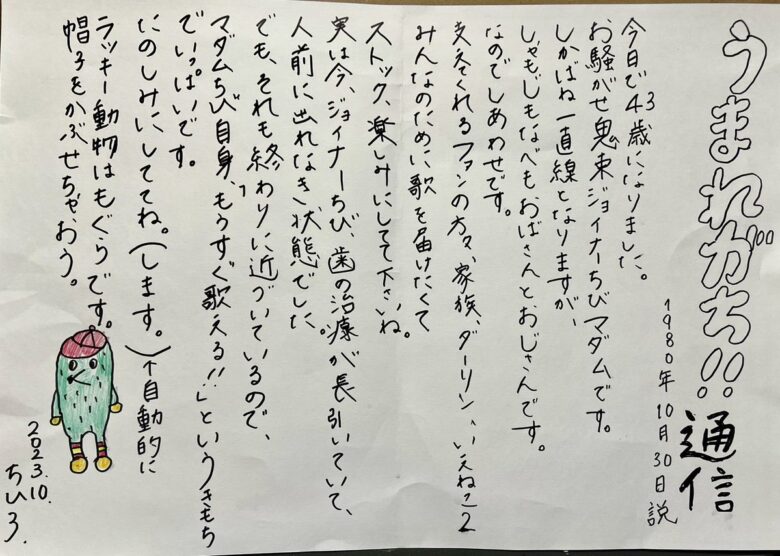 うまれがち!!通信
1980年10月30日説
今日で43歳になりました。
お騒がせ鬼束ジョイナーちびマダムです。
しかばね一直線となりますが、
しゃもじもなべもおばさんと、おじさんです。
なのでしあわせです。
支えてくれるファンの方々、家族、ダーリン、いえねこ2
みんなのために歌を届けたくて
ストック、楽しみにしてて下さいね。
実は今、ジョイナーちび、歯の治療が長引いていて、
人前に出れなき状態でした。
でも、それも終わりに近づいているので、
マダムちび自身、「もうすぐ歌える!!」というきもち
でいっぱいです。
たのしみにしててね。(します。)↑自動的に
ラッキー動物はもぐらです。
帽子をかぶせちゃおう。
2023.10.
ちひろ.